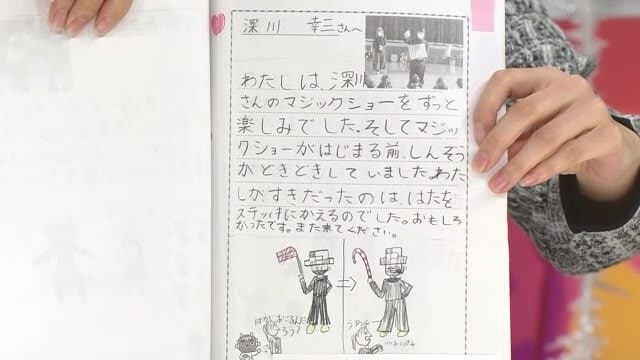 深川 幸三さんへ
わたしは、深川
さんのマジックショーをずっと
楽しみでした。そしてマジッ
クショーがはじまる前、しんぞう
がどきどきしていました。わた
しがすきだったのは、はたを
ステッキにかえるのでした。おもしろ
かったです。また来てください。